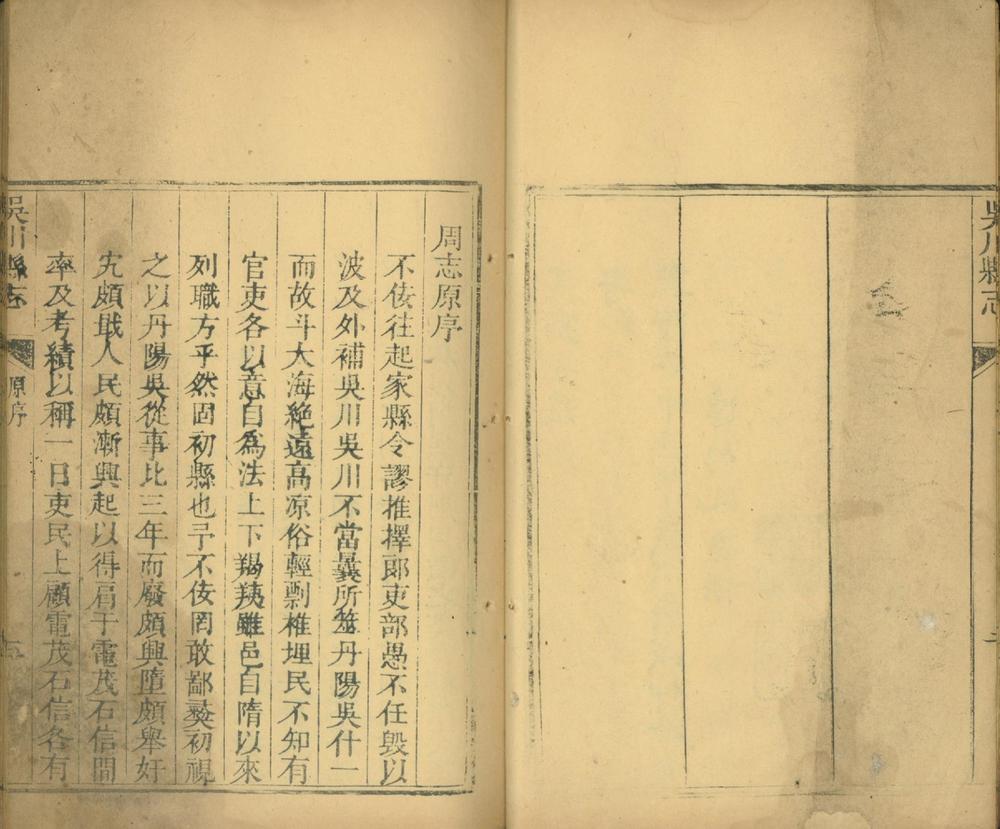 吳川縣志
二
周志原序
不佞往起家縣令謬推擇郎吏部愚不任毀以
波及外補吳川吳川不當曩所筮丹陽吳什一
而故斗大海絶遠高凉俗輕剽椎埋民不知有
官吏各以意自爲法上下羯羠雖邑自隋以來
列職方乎然固初縣也予不佞罔敢鄙夷初視
之以丹陽吳從事比三年而廢頗興墮頗舉奸
宄頗戢人民頗漸興起以得肩于電茂石信間
率及考績以稱一日吏民上顧電茂石信各有
吳川縣志
原序
三